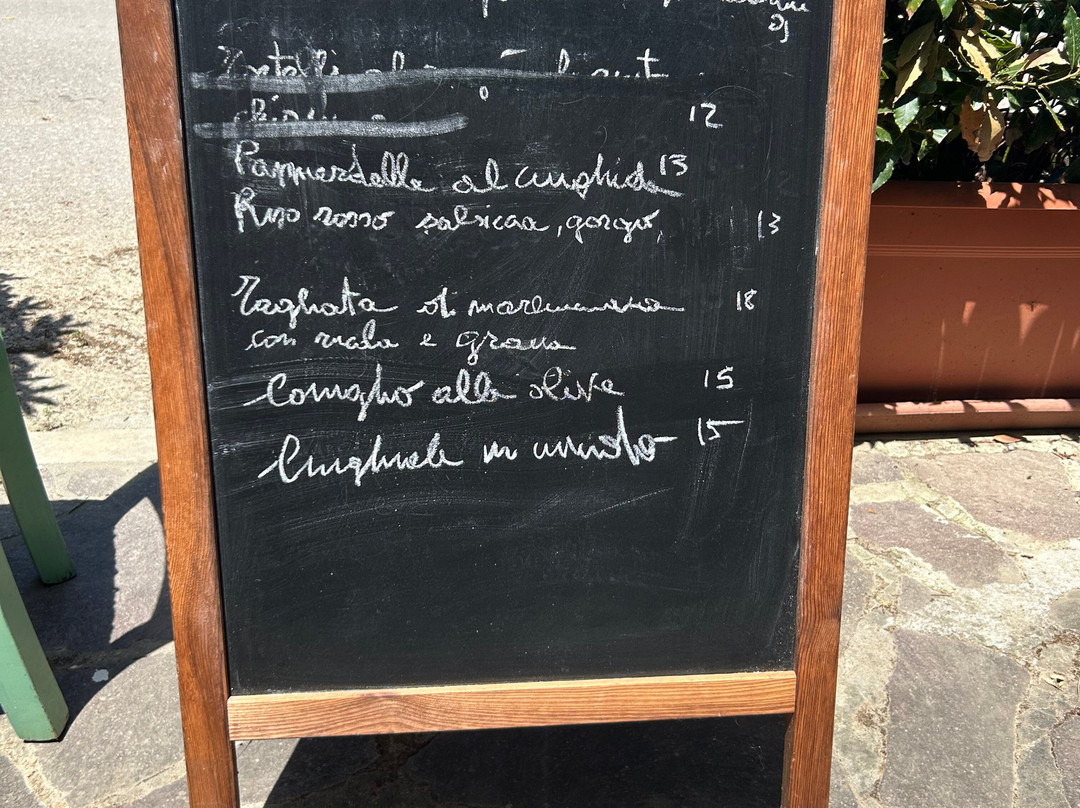 12
Pappardelle al cinghiale 13
Riso rosso salsiccia, gorgo, 13
Tagliata di maremmana 18
con rucola e grana
Coniglio alle olive 15
Cinghiale in umido 15